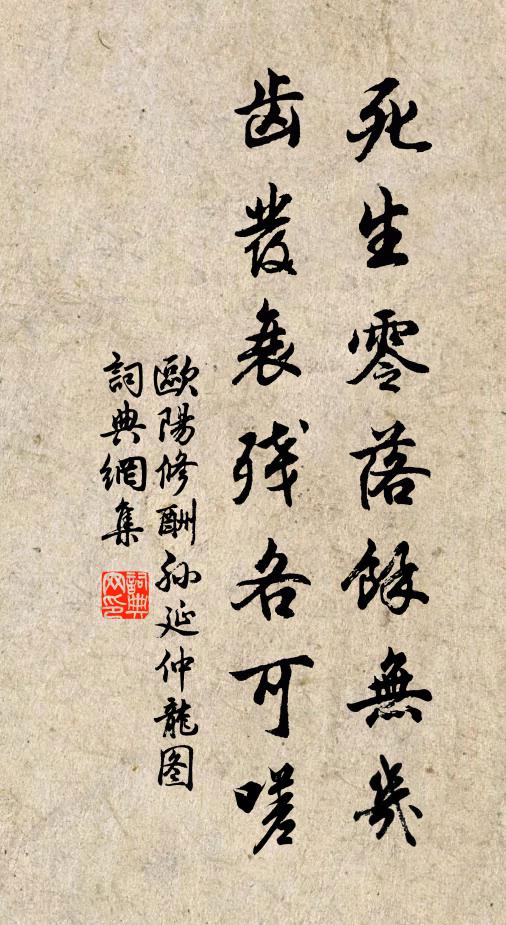 死生零落餘無幾
齒發衰残各可嗟
歐陽修酬孙延仲龍图
詞典網集
詞典网印